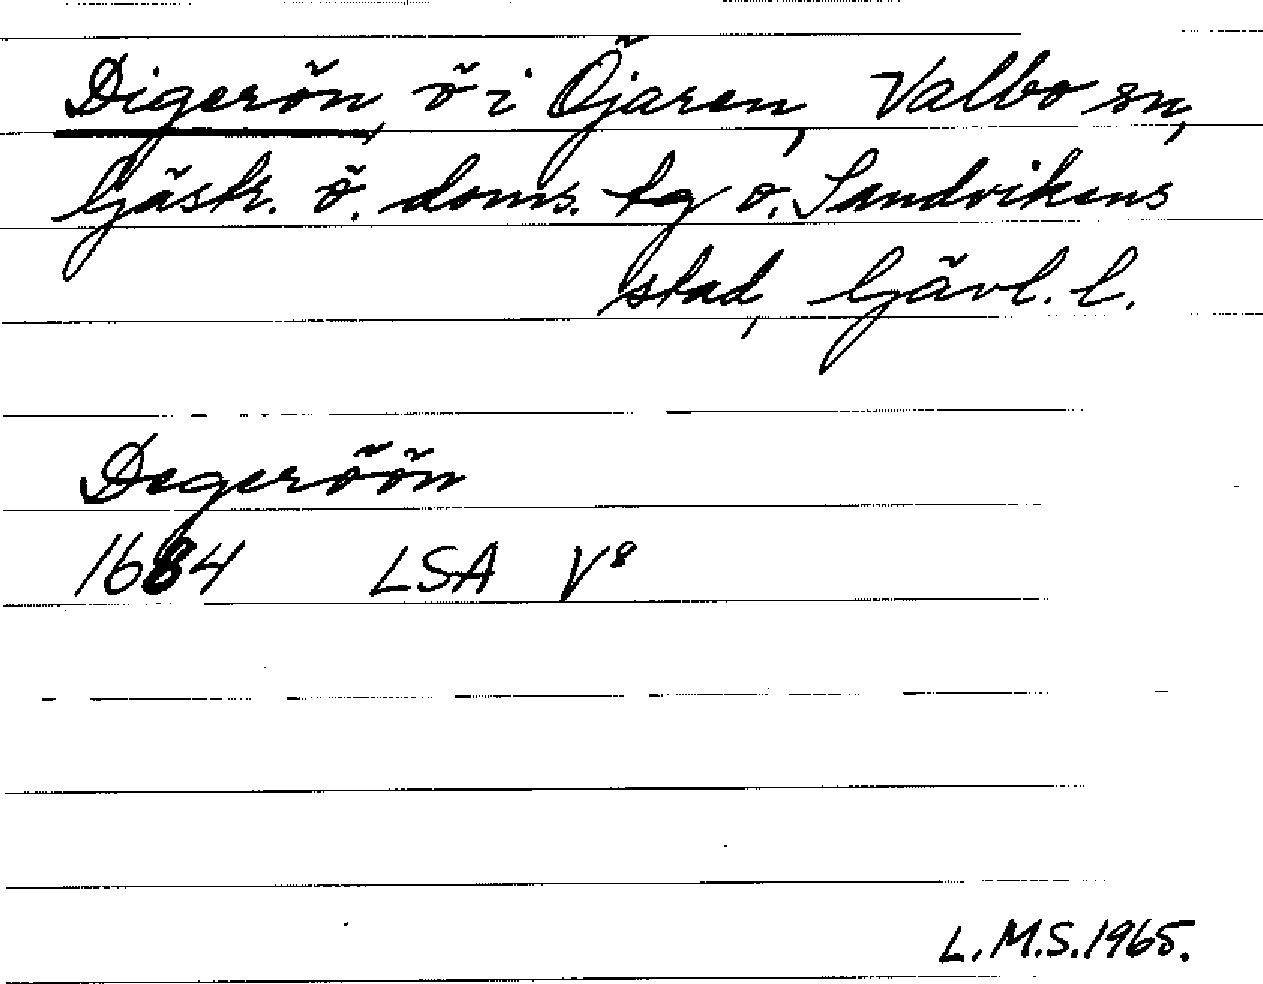 Digerön, ö i Öjaren, Valbo sn,
Gästr. ö. doms. tg o. Sandvikens
stad, Gävl. l.
Degeröön
1684 LSA V⁸
L.M.S. 1965.